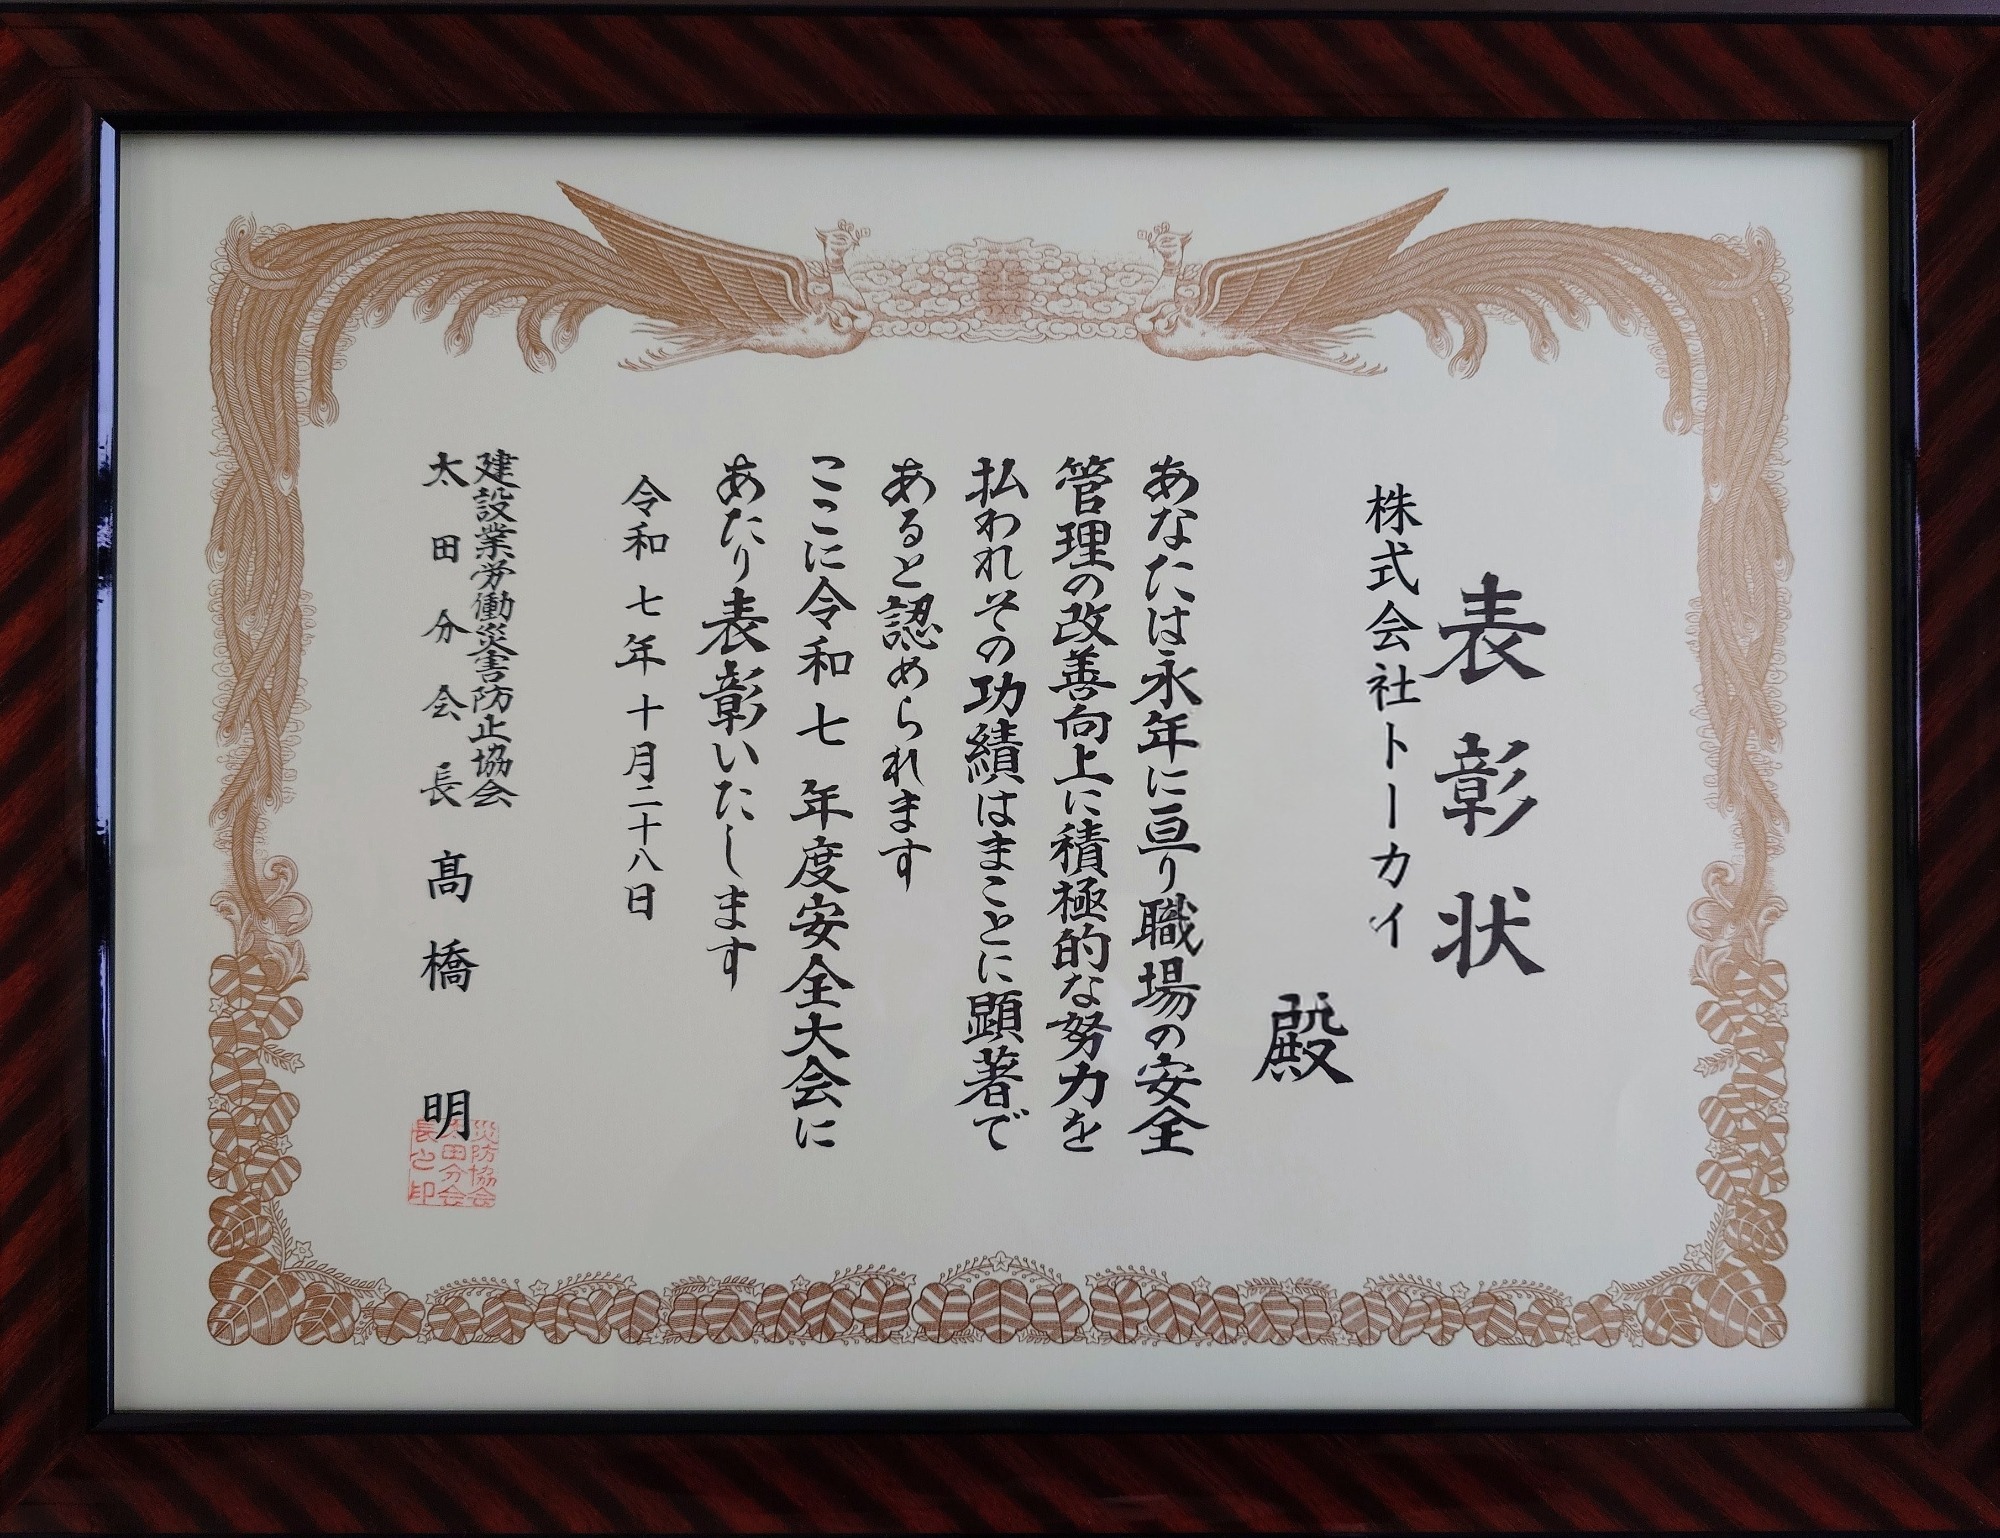 表彰状
株式会社トーカイ
殿
あなたは永年に亘り職場の安全
管理の改善向上に積極的な努力を
払われその功績はまことに顕著で
あると認められます
ここに令和七年度安全大会に
あたり表彰いたします
令和七年十月二十八日
建設業労働災害防止協会
太田分会長髙橋明
災防協会
太田分会
長之印